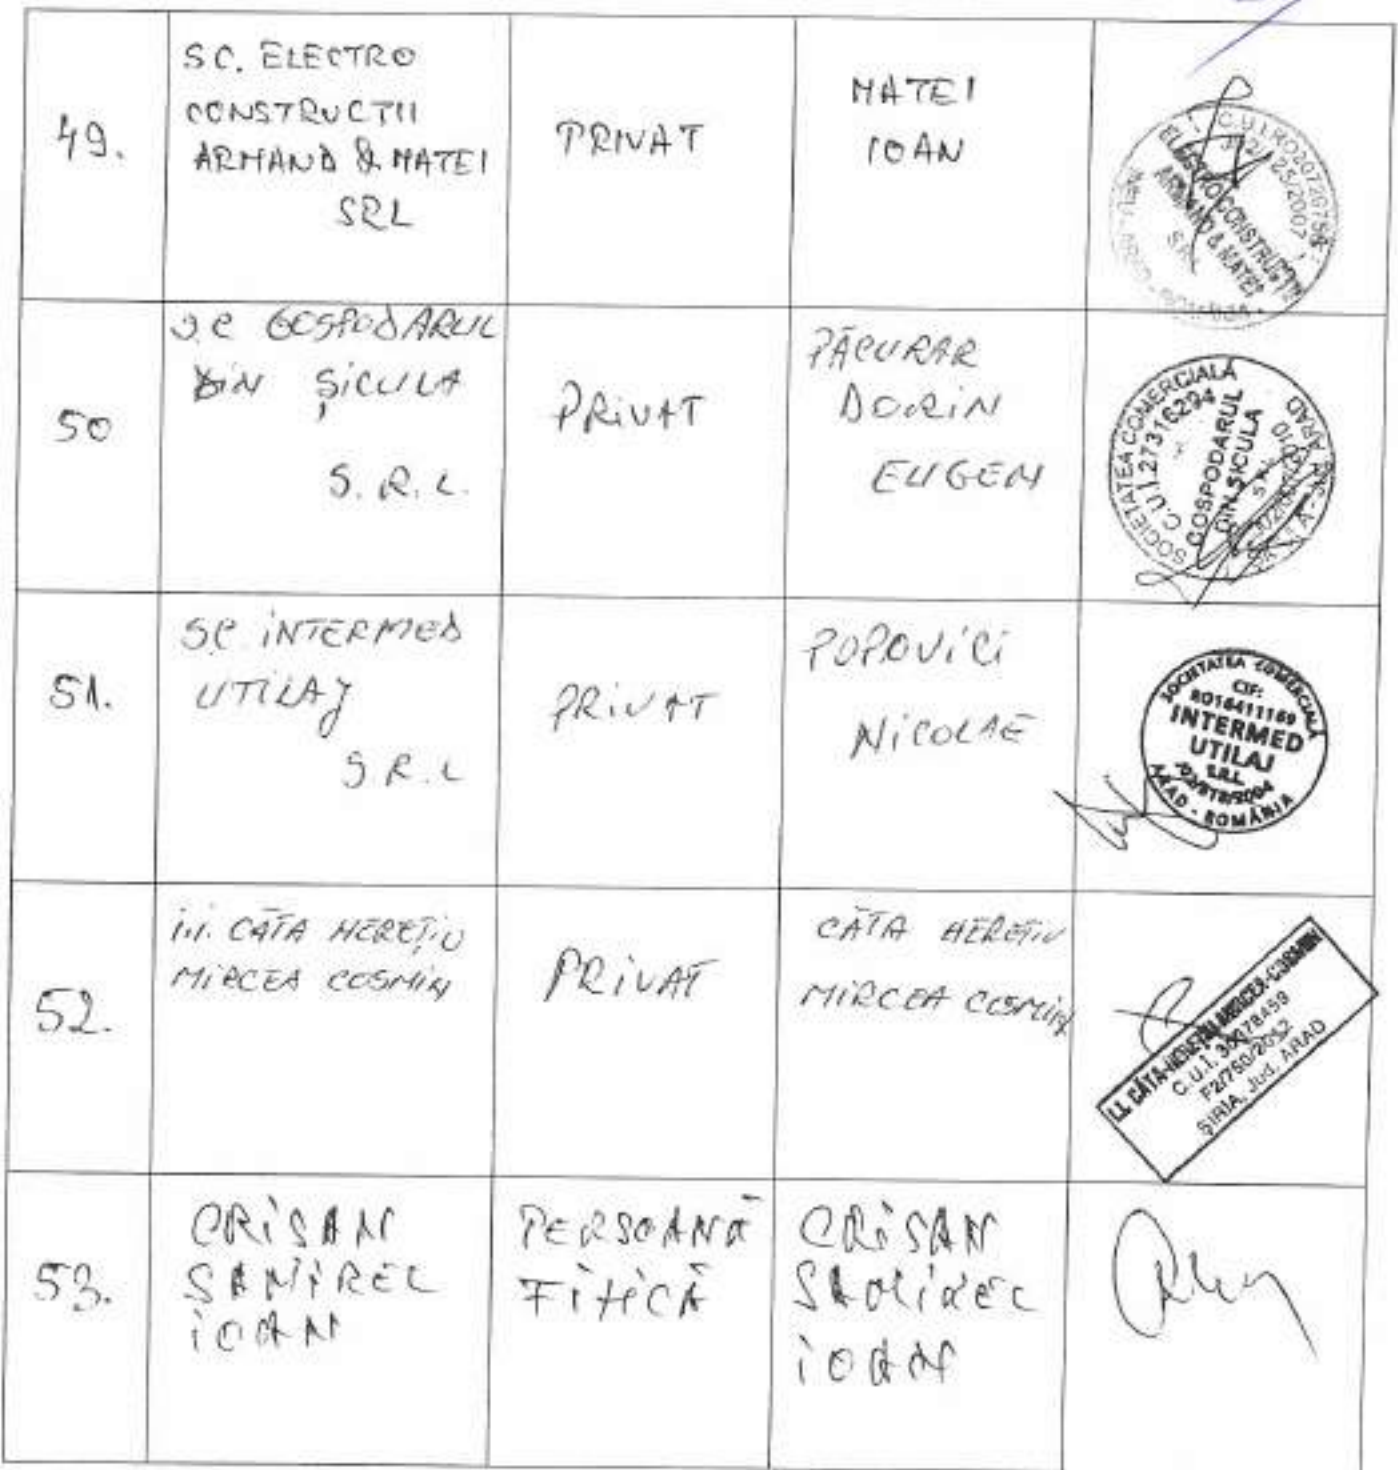 49.
S.C. ELECTRO
CONSTRUCTII
ARMAND & MATEI
SRL
PRIVAT
MATEI
IOAN
ELECTROCONSTRUCTII
ARMAND & MATEI
50
S.C GOSPODARUL
DIN ȘICULA
S.R.L.
PRIVAT
PĂCURAR
DORIN
EUGEN
SOCIETATEA COMERCIALĂ
C.U.I.27316294
GOSPODARUL
DIN ȘICULA
ARAD
51.
SC. INTERMED
UTILAJ
S.R.L
PRIVAT
POPOVICI
NICOLAE
SOCIETATEA COMERCIALĂ
CIF:
RO16411169
INTERMED
UTILAJ
S.R.L.
ARAD - ROMÂNIA
52.
i.i. CĂTA HEREȚIU
MIRCEA COSMIN
PRIVAT
CĂTA HEREȚIU
MIRCEA COSMIN
C.U.I. 30078459
F2/750/2012
ȘIRIA, Jud. ARAD
53.
CRISAN
SAMIREL
IOAN
PERSOANĂ
FIZICĂ
CRISAN
SAMIREL
IOAN